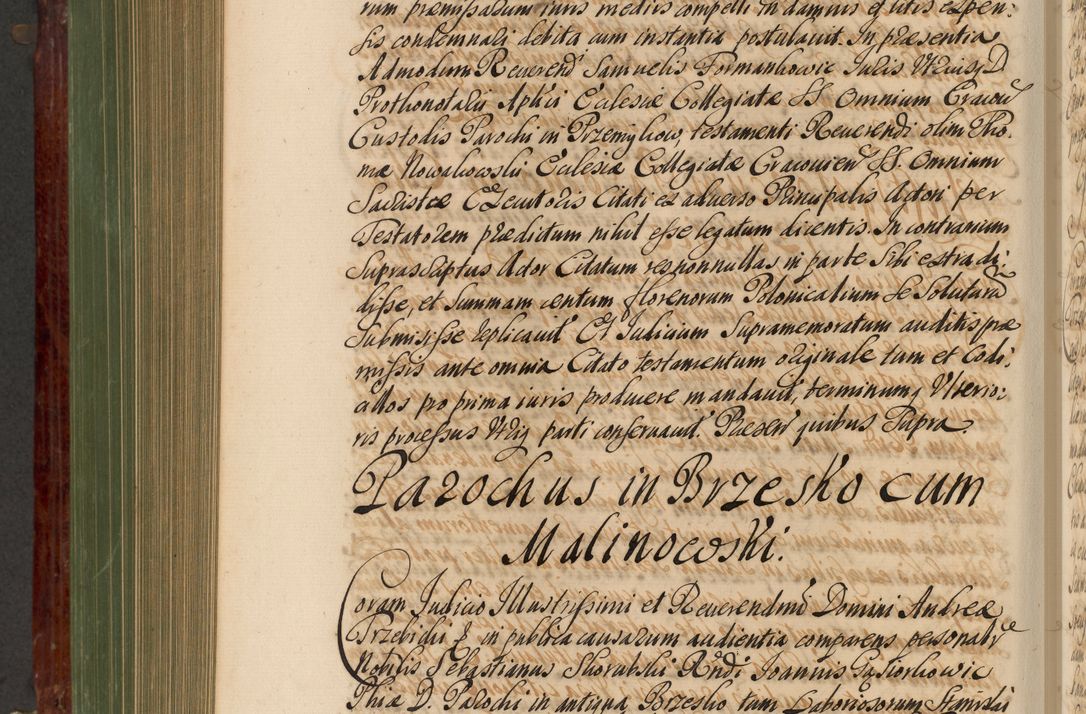 rum præmissarum iuris mediis compelli in damnis et litis expen:
sis condemnari debita cum instantia postulauit. In præsentia
Admodum Reuerend Samuelis Formankowic Iuris Vtriusq D
Prothonotarii Aplici Eclesiæ Collegiatæ SS Omnium Cracou
Custodis Parochi in Przemykow, testamenti Reuerendi olim Tho:
mæ Nowakowski Eclesiæ Collegiatæ Cracouien SS. Omnium
Sacristæ Executoris Citati ex aduerso Principalis Actori per
Testatorem prædictum nihil esse legatum dicentis. In contrarium
Suprascriptus Actor Citatum res nonnullas in parte Sibi extradi:
disse, et Summam centum florenorum Polonicalium se Soluturu
Submisisse replicauit Et Iudicium Supramemoratum auditis præ
missis ante omnia Citato testamentum originale tum et Codi:
cillos pro prima iuris producere mandauit, terminumq Vlterio:
ris processus Vtriq parti conseruauit. Præsen quibus Supra.
Parochus in Brzesko cum
Malinowski.
Coram Judicio Illustrissimi et Reuerendmi Domini Andreæ
Trzebicki in publica causarum audientia comparens personalr
Nobilis Sebastianus Skorabski Rndi Ioannis Gąsiorkowic
Phiæ D. Parochi in antiqua Brzesko tum Laboriosorum Stanislai